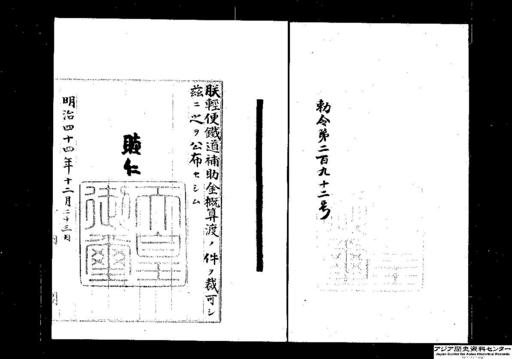 勅令第二百九十二号
朕輕便鐵道補助金概算渡ノ件ヲ裁可シ
茲ニ之ヲ公布セシム
睦仁
天皇
御璽
明治四十四年十二月二十三日
アジア歴史資料センター
Japan Center for Asian Historical Records